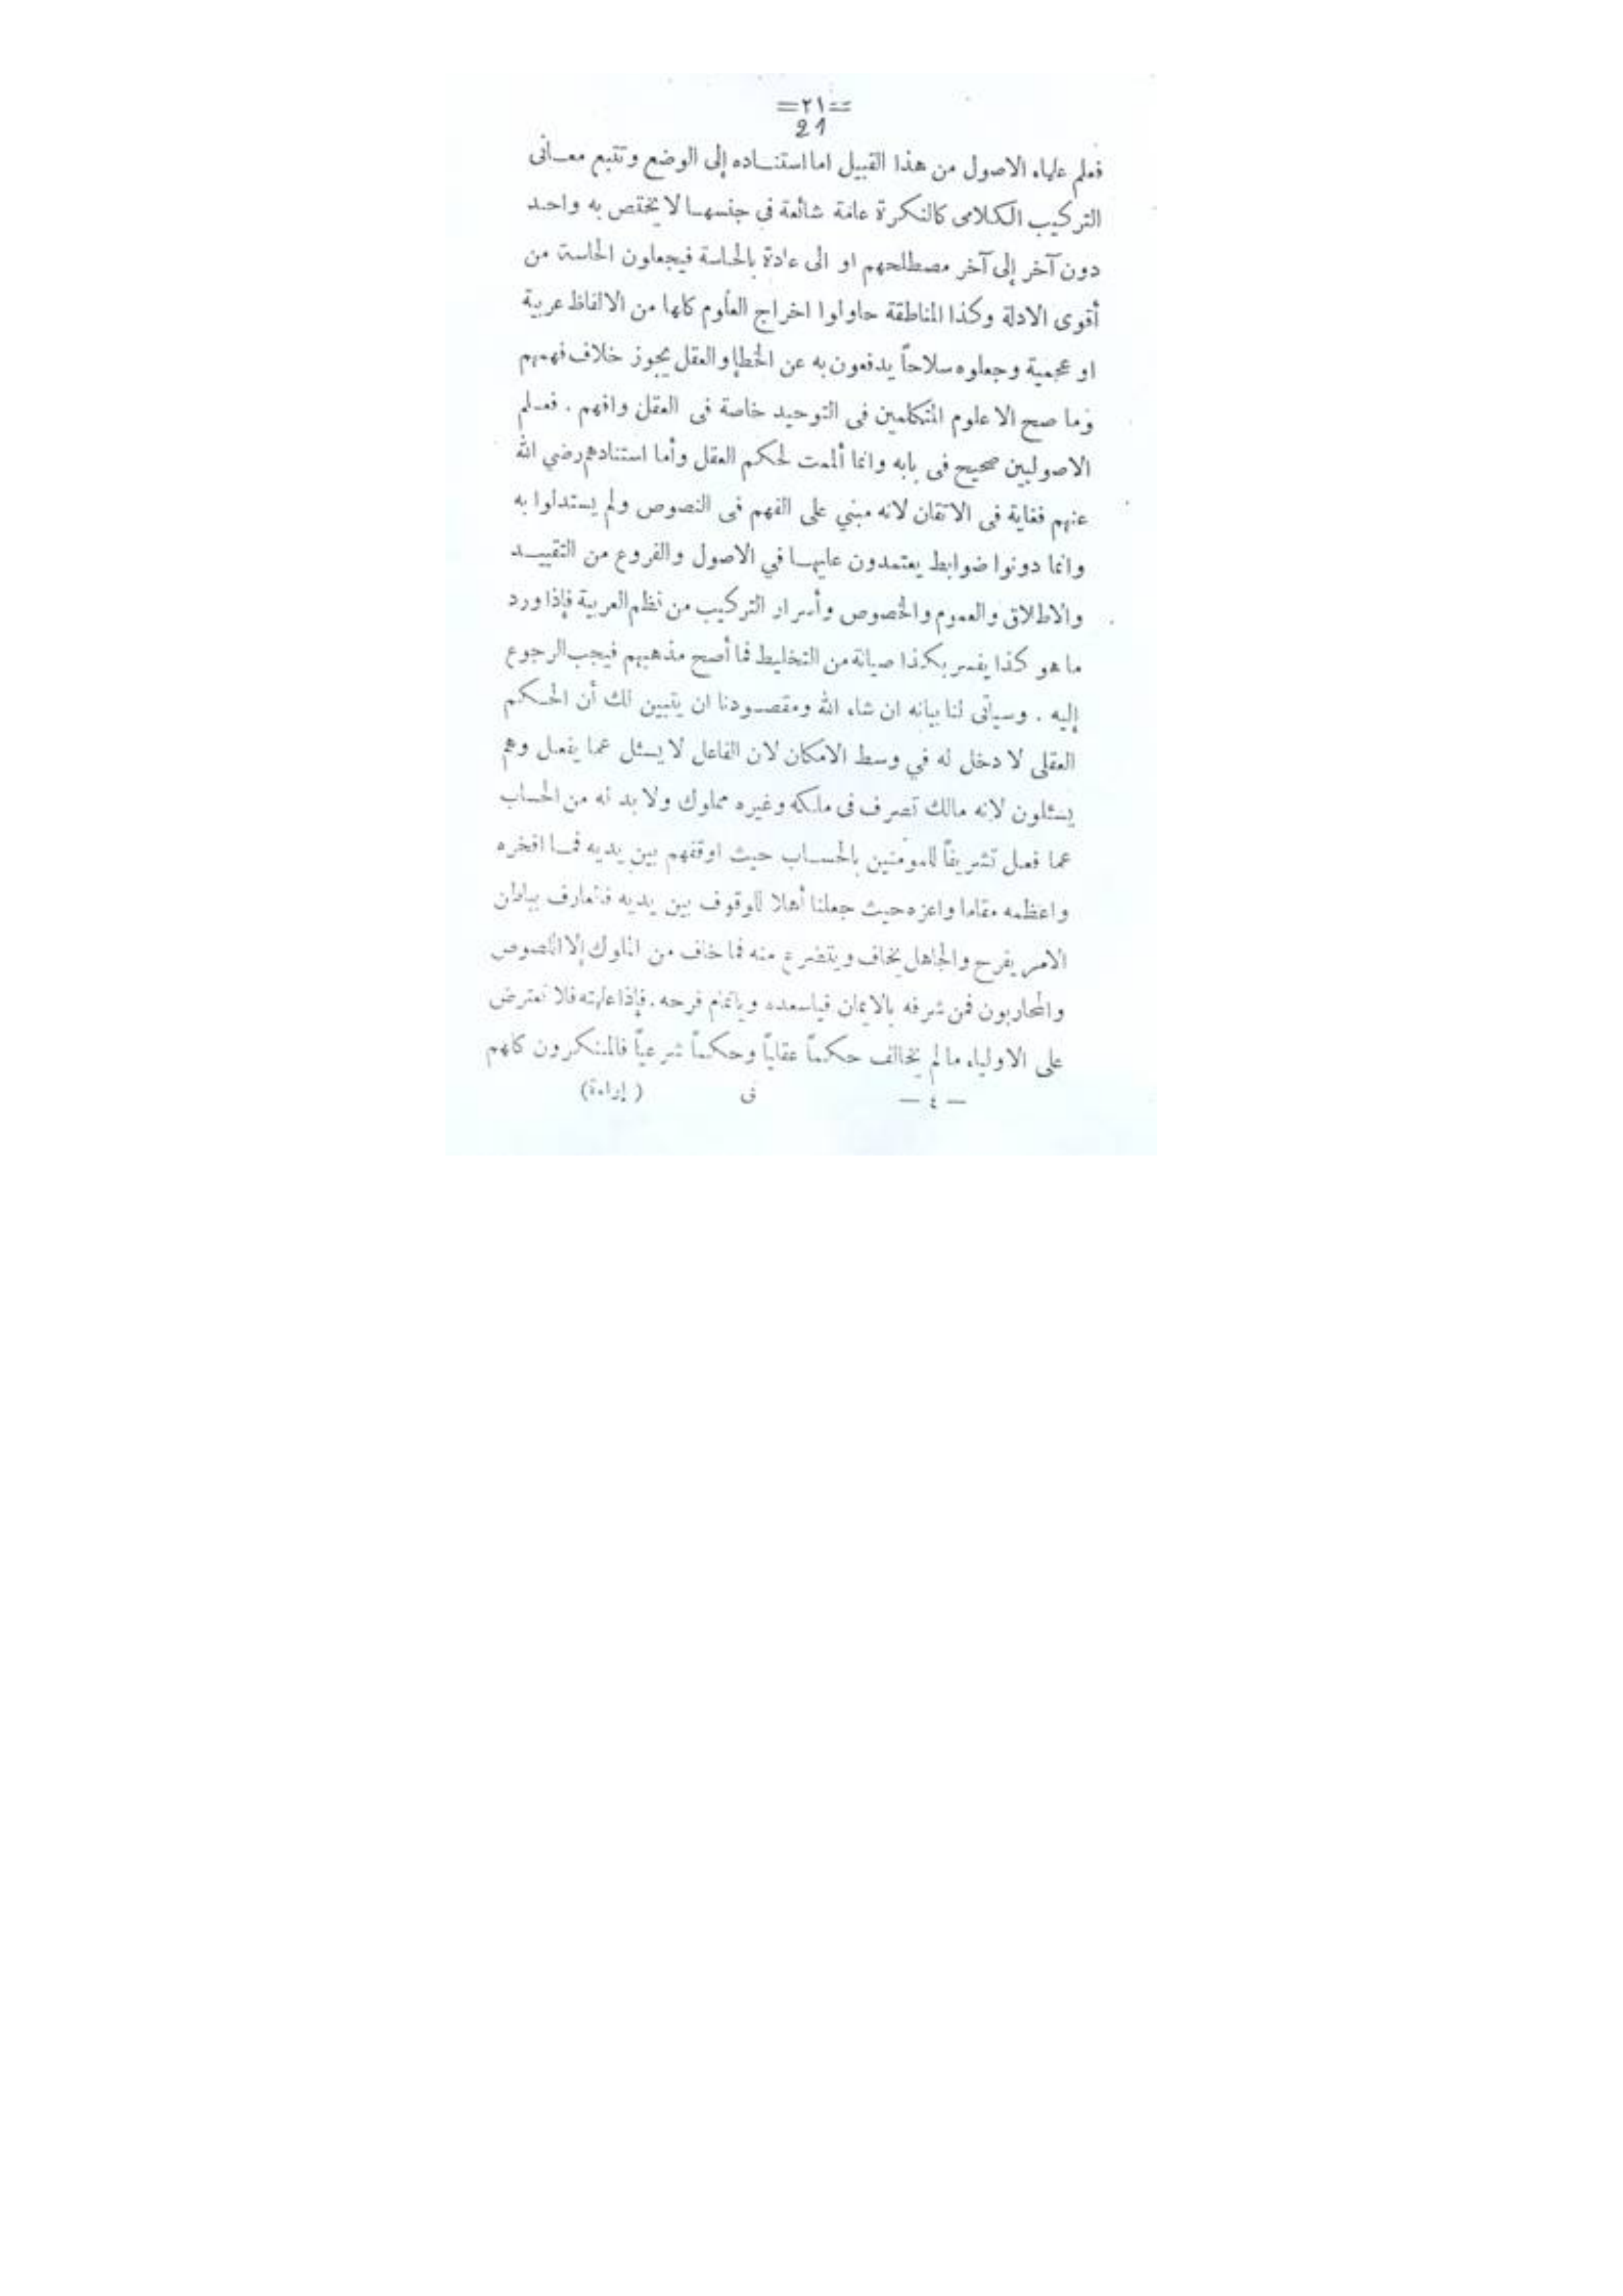 =٢١=
21
فعلم علماء الاصول من هذا القبيل اما استنـاده إلى الوضع وتتبع معـانى
التركيب الكلامى كالنكرة عامة شائعة في جنسهـا لا يختص به واحد
دون آخر إلى آخر مصطلحهم او الى عادة بالحاسة فيجعلون الحاسة من
أقوى الادلة وكذا المناطقة حاولوا اخراج العلوم كلها من الالفاظ عربية
او عجمية وجعلوه سلاحاً يدفعون به عن الخطإ والعقل يجوز خلاف فهمهم
وما صح الا علوم المتكلمين فى التوحيد خاصة فى العقل وافهم . فعـلم
الاصوليين صحيح فى بابه وانما ألمعت لحكم العقل وأما استنادهم رضي الله
عنهم فغاية فى الاتقان لانه مبني على الفهم فى النصوص ولم يستدلوا به
وانما دونوا ضوابط يعتمدون عليهـا في الاصول والفروع من التقييـد
والاطلاق والعموم والخصوص وأسرار التركيب من نظم العربية فإذا ورد
ما هو كذا يفسر بكذا صيانة من التخليط فما أصح مذهبهم فيجب الرجوع
إليه . وسيأتى لنا بيانه ان شاء الله ومقصـودنا ان يتبين لك أن الحـكم
العقلى لا دخل له في وسط الامكان لان الفاعل لا يسئل عما يفعل وهم
يسئلون لانه مالك تصرف فى ملكه وغيره مملوك ولا بد له من الحساب
عما فعل تشريفاً للمؤمنين بالحسـاب حيث اوقفهم بين يديه فمـا افخره
واعظمه مقاما واعزه حيث جعلنا أهلا للوقوف بين يديه فالعارف بباطن
الامر يفرح والجاهل يخاف ويتضرع منه فما خاف من الملوك إلا اللصوص
والمحاربون فمن شرفه بالايمان فياسعده وياتمام فرحه. فإذا علمته فلا تعترض
على الاولياء ما لم يخالف حكماً عقلياً وحكماً شرعياً فالمنكرون كلهم
— ٤ — فى ( إزاءة)